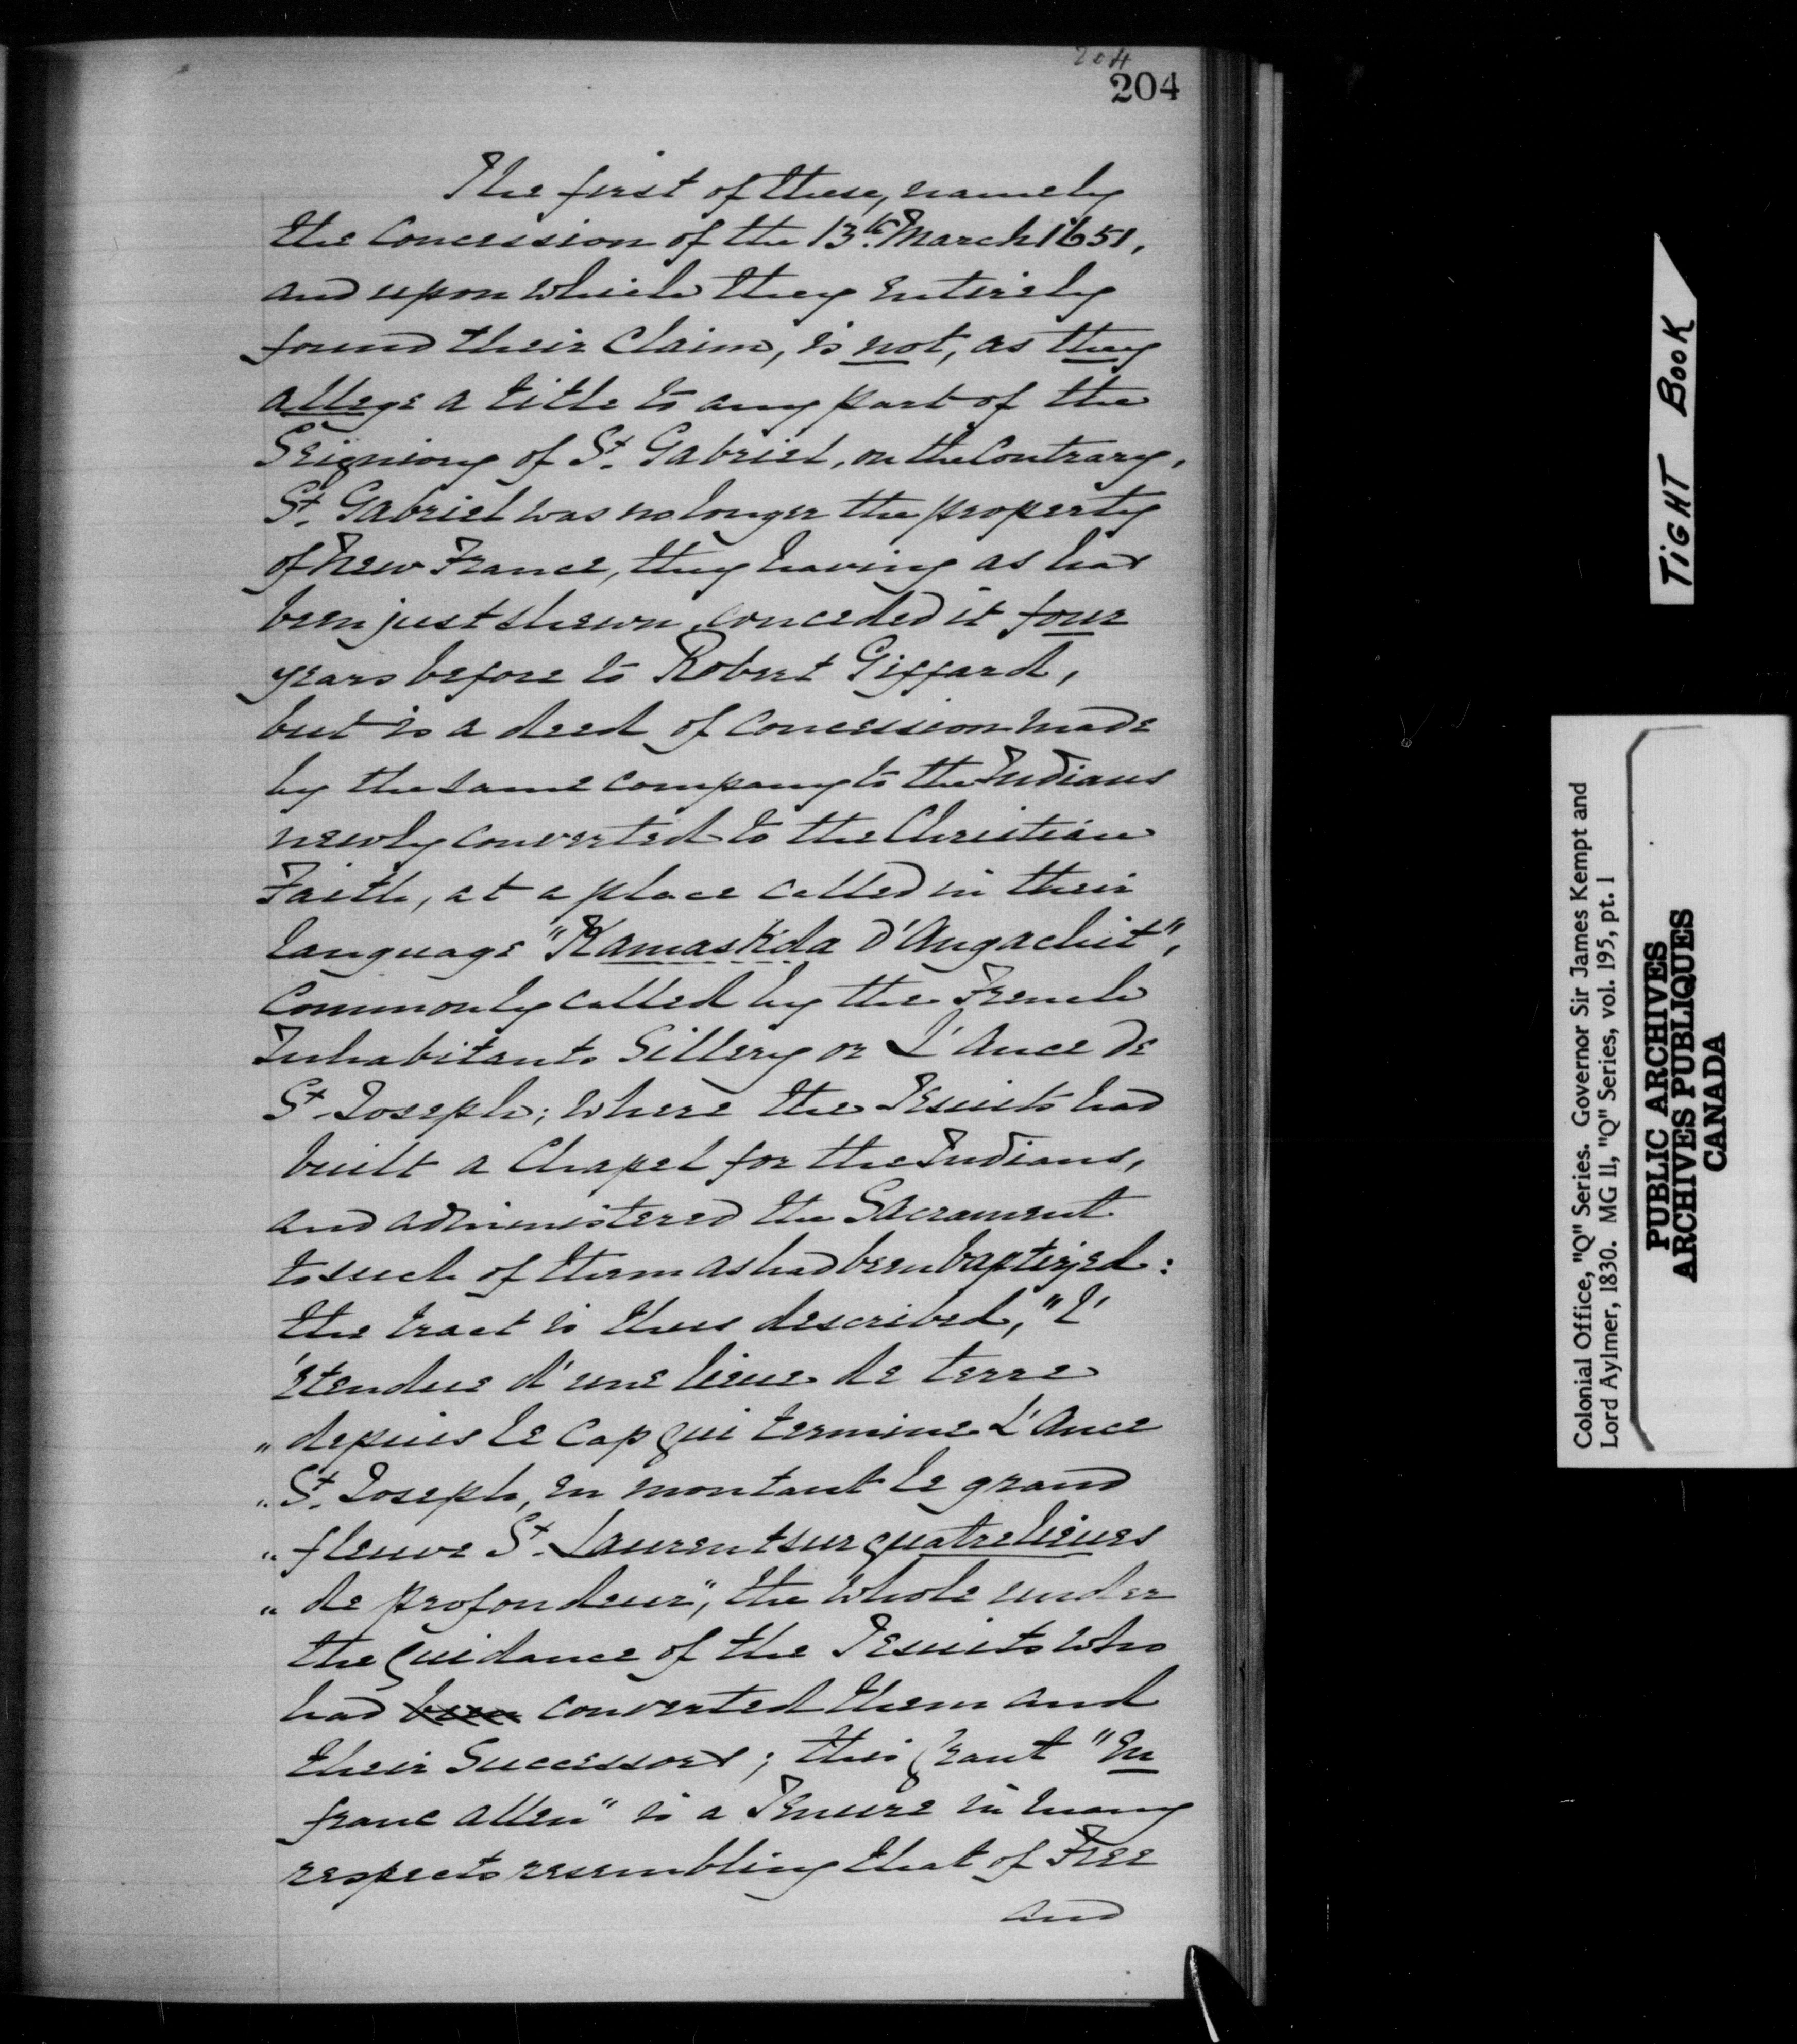 204
204
The first of these, namely
the Concession of the 13th. March 1651,
and upon which they entirely
found their Claim, is not, as they
allege a title to any part of the
Seigniory of St. Gabriel, on the Contrary,
St. Gabriel was no longer the property
of New France, they having as has
been just shewn, conceded it four
years before to Robert Giffard,
but is a deed of Concession made
by the same company to the Indians
newly converted to the Christian
Faith, at a place called in their
language "Kamaskda D'Angachit",
Commonly called by the French
Inhabitants Sillery or L'Ance de
St. Joseph; where the Jesuits had
built a Chapel for the Indians,
and administered the Sacrament
to such of them as had been baptized:
the tract is thus described, "L'
'Etendue d'une lieue de terre
" depuis le Cap qui termine L'Ance
" St. Joseph, en montant le grand
" fleuve St. Laurent sur quatre lieues
" de profondeur", the whole under
the guidance of the Jesuits who
had been converted them and
their Successors; this grant "En
franc alleu" is a Tenure in many
respects resembling that of Free
and
TIGHT BOOK
Colonial Office, "Q" Series. Governor Sir James Kempt and
Lord Aylmer, 1830. MG 11, "Q" Series, vol. 195, pt. 1
PUBLIC ARCHIVES
ARCHIVES PUBLIQUES
CANADA